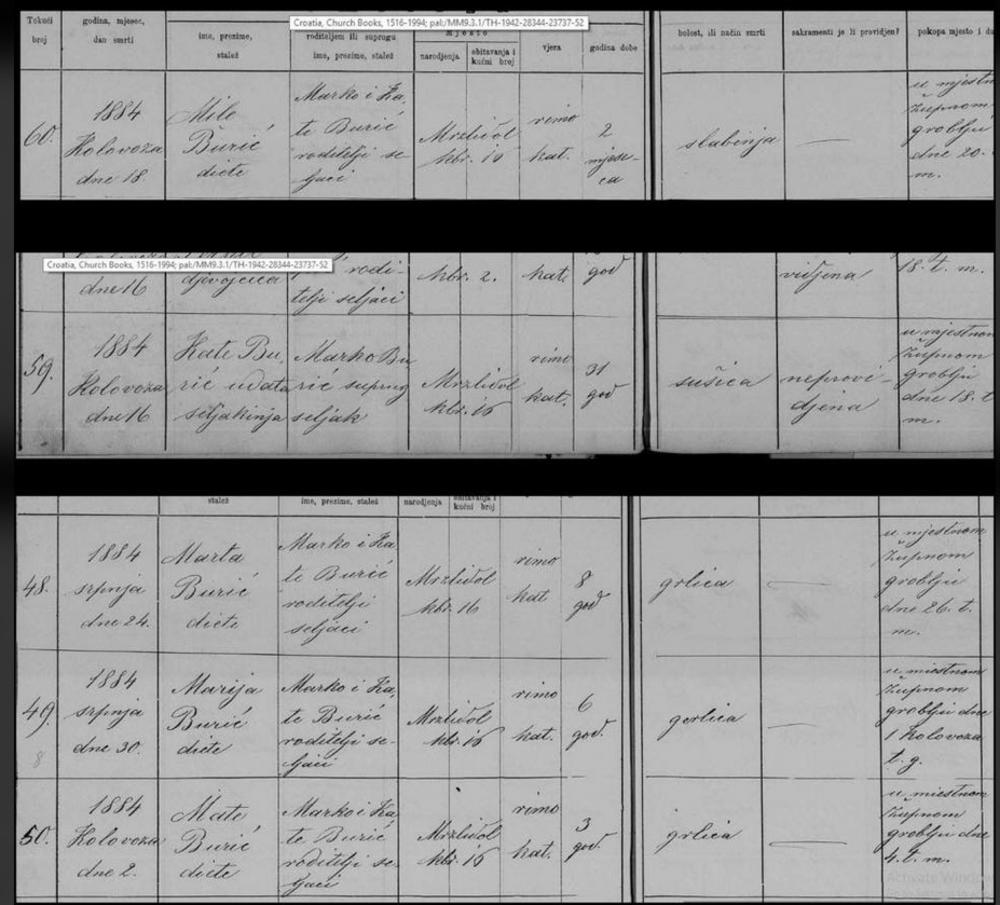 Croatia, Church Books, 1516-1994; pal:/MM9.3.1/TH-1942-28344-23737-52
Tekući broj
godina, mjesec, dan smrti
ime, prezime, stalež
roditeljem ili suprugu ime, prezime, stalež
Mjesto
narodjenja
obitavanja i kućni broj
vjera
godina dobe
bolest, ili način smrti
sakramenti je li providjen?
pokopa mjesto i
60.
1884
Kolovoza
dne 18.
Mile
Burić
diete
Marko i Ka,
te Burić
roditelji se-
ljaci
Mrzlidol
kbr. 16
rimo
kat.
2
mjese-
ca
slabinja
u mjestn
župnom
groblju
dne 20.
m.
Croatia, Church Books, 1516-1994; pal:/MM9.3.1/TH-1942-28344-23737-52
dne 16
djevojčica
rodi-
telji seljaci
kbr. 2.
kat.
god
vidjena
18. t. m.
59.
1884
Kolovoza
dne 16
Kate Bu,
rić udata
seljakinja
Marko Bu
rić suprug
seljak
Mrzlidol
kbr. 16
rimo
kat.
31
god
sušica
neprovi-
djena
u mjestnom
župnom
groblju
dne 18. t.
m.
stalež
ime, prezime, stalež
narodjenja
obitavanja i kućni broj
48.
1884
srpnja
dne 24.
Marta
Burić
diete
Marko i Ka,
te Burić
roditelji
seljaci
Mrzlidol
kbr. 16
rimo
kat
8
god
grlica
u mjestnom
župnom
groblju
dne 26. t.
m.
49.
8
1884
srpnja
dne 30.
Marija
Burić
diete
Marko i Ka,
te Burić
roditelji se-
ljaci
Mrzlidol
kbr. 16
rimo
kat.
6
god.
gerlica
u miestnom
župnom
groblju dne
1 Kolovoza
t. g.
50.
1884
Kolovoza
dne 2.
Mate
Burić
diete
Marko i Ka,
te Burić
roditelji se-
ljaci
Mrzlidol
kbr. 16
rimo
kat.
3
god.
grlica
u miestnom
župnom
groblju dne
4. t. m.
Activate Window